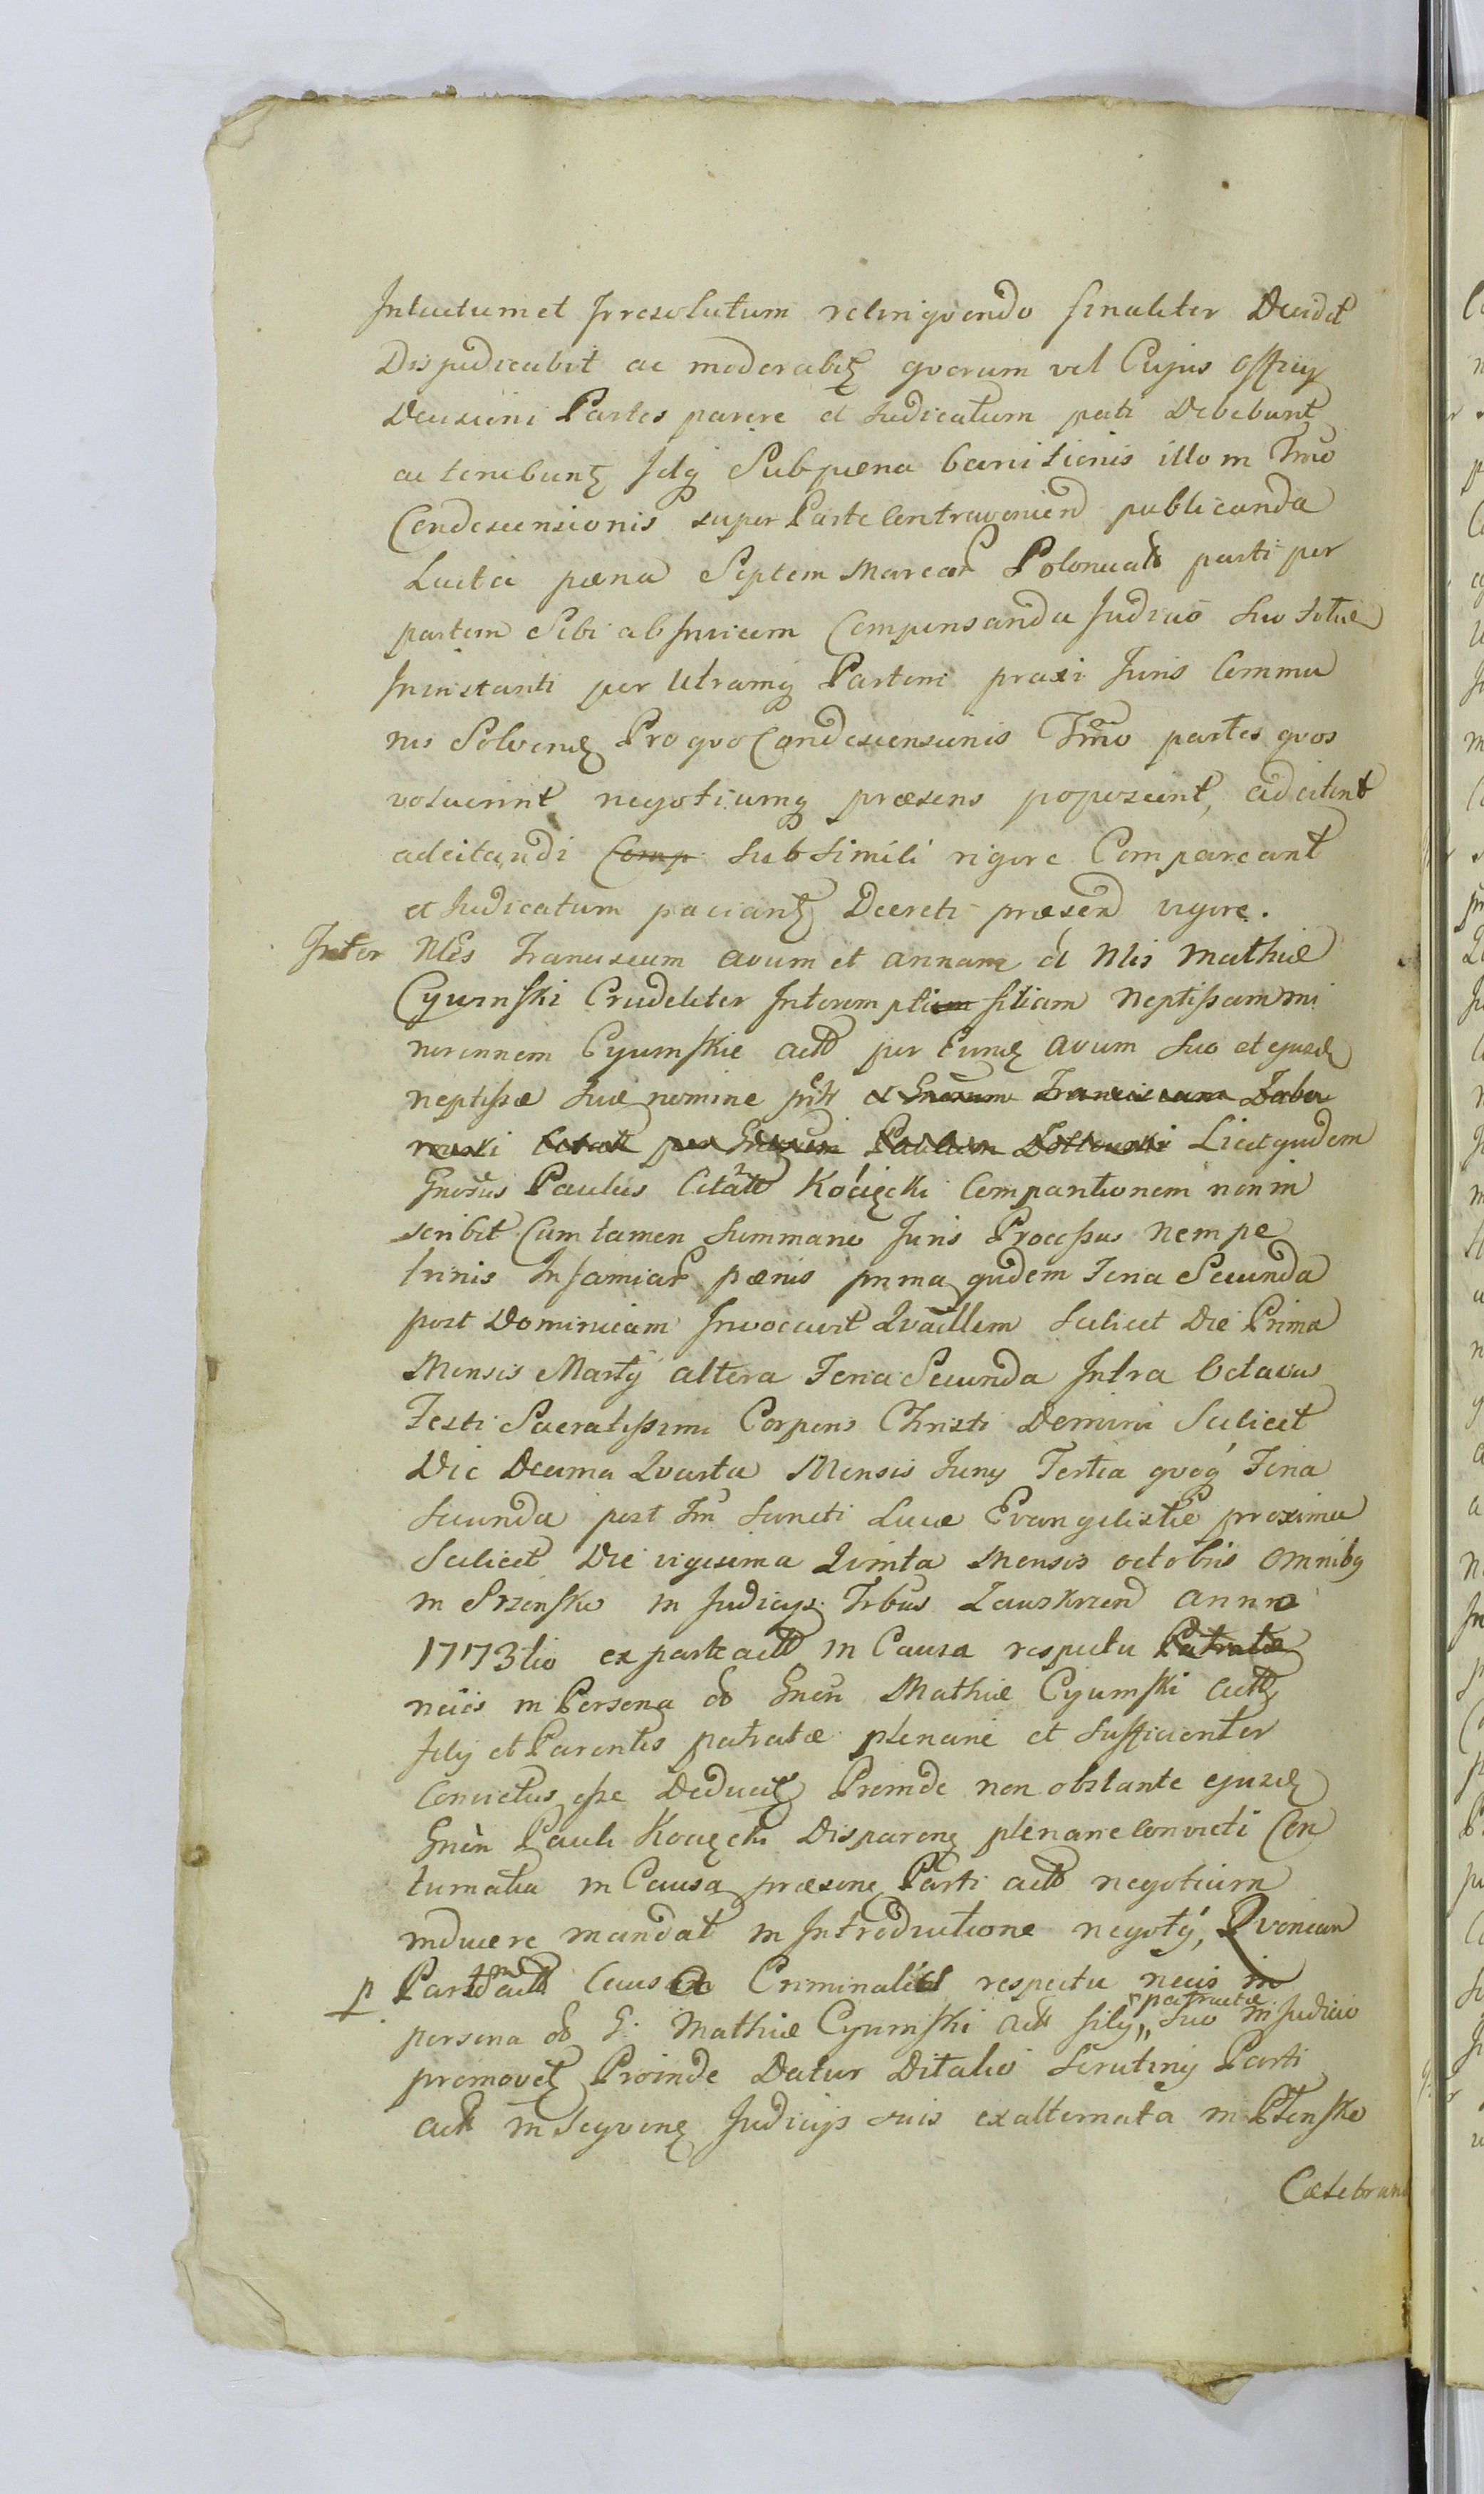 Intactum et Irresolutum relinqvendo finaliter Decidet
Disjudicabit ac moderabitz qvorum vel Cujus Officij
Decisioni Partes parere et Judicatum pati Debebunt
ac tenebuntz Idq Sub pæna banitionis illo in Tmo
Condescensionis super Parte Contravenien publicanda
Luita pæna Septem Marcar Polonical parti per
partem Sibi ab Invicem Compensanda Judicio suo
In instanti per Utramq Partem praxi Juris Commu
nis Solvenz Pro qvo Condescensionis Tmo partes qvos
voluerint negotiumq præsens poposcerint, adcitent
adcitandi Comp sub simili rigore Compareant
et Judicatum paciantz Decreti præsen vigore.
Inter Nles Franciscum avum et annam ol Nlis Mathiæ
Cyumski Crudeliter Interempti filiam Neptissam mi
norennem Cyumskie act per Eunz avum suo et ejusd
neptissæ suæ nomine Franciscum
Licet qvidem
Gnosus Paulus Citat Kocięcki Comparitionem non in
scribit Cum tamen Summario Juris Processus Nempe
trinis Infamiar pænis prima qvidem Feria Secunda
post Dominicam Invocavit Qvallem Scilicet Die Prima
Mensis Martij altera Feria Secunda Intra Octavas
Festi Sacratissimi Corporis Christi Domini Scilicet
Die Decima Qvarta Mensis Junij Tertia qvoq Feria
Secunda post Sancti Lucæ Evangelistæ proxima
Scilicet Die vigesima Qvinta Mensis octobris omnibq
in Srzensko in Judicijs Trbus Zauskrzen anno
1773tio ex parte act in Causa respectu Patratæ
necis in Persona ol Gnen Mathiæ Cyumski act
filij et Parentis patratæ plenarie et Sufficienter
Convictus esse Deducitz Proinde non obstante ejusd
Gnen Pauli Kocięcki Disparenz plenarie Convicti Con
tumatia in Causa præsenz Parti act negotium
inducere mandat in Introductione negotij, Qvoniam
p Pars act Causa Criminalis respectu necis in
persona ol G. Mathiæ Cyumski act filij, patratæ suo in Judicio
promovetz Proinde Datur Dilatio Scrutinij Parti
act in Seqvenz Judicijs suis ex alternata in Płonsko
Cælebran